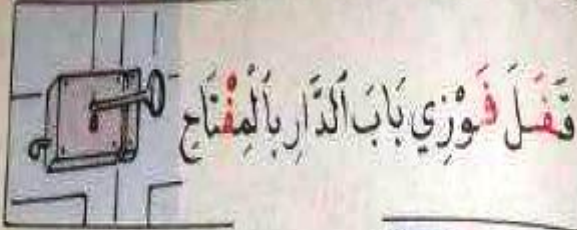 قَفَلَ فَوْزِي بَابَ ٱلدَّارِ بِٱلْمِفْتَاحِ